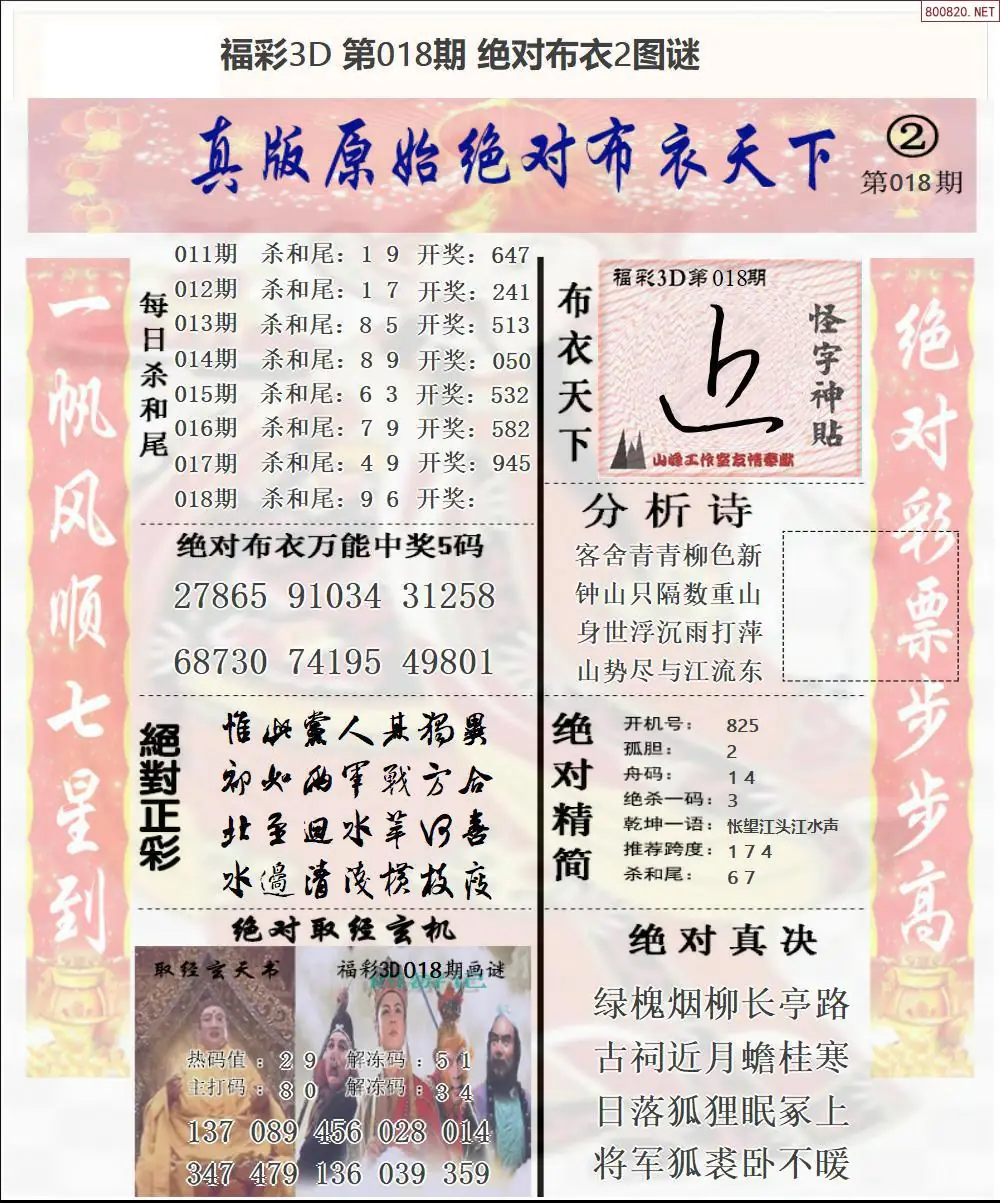 800820.NET
福彩3D 第018期 绝对布衣2图谜
真版原始绝对布衣天下
②
第018期
一帆风顺七星到
每日杀和尾
011期 杀和尾：1 9 开奖：647
012期 杀和尾：1 7 开奖：241
013期 杀和尾：8 5 开奖：513
014期 杀和尾：8 9 开奖：050
015期 杀和尾：6 3 开奖：532
016期 杀和尾：7 9 开奖：582
017期 杀和尾：4 9 开奖：945
018期 杀和尾：9 6 开奖：
绝对布衣万能中奖5码
27865 91034 31258
68730 74195 49801
絕對正彩
惟此黨人其獨異
卻如兩軍戰方合
北至迴水萃何喜
水邊清淺橫枝瘦
绝对取经玄机
取经玄天书
福彩3D018期画谜
热码值：2 9 解冻码：5 1
主打码：8 0 解冻码：3 4
137 089 456 028 014
347 479 136 039 359
布衣天下
福彩3D第018期
怪字神貼
山峰工作室友情奉献
分析诗
客舍青青柳色新
钟山只隔数重山
身世浮沉雨打萍
山势尽与江流东
绝对精简
开机号： 825
孤胆： 2
舟码： 1 4
绝杀一码：3
乾坤一语：怅望江头江水声
推荐跨度：1 7 4
杀和尾： 6 7
绝对真决
绿槐烟柳长亭路
古祠近月蟾桂寒
日落狐狸眠冢上
将军狐裘卧不暖
绝对彩票步步高